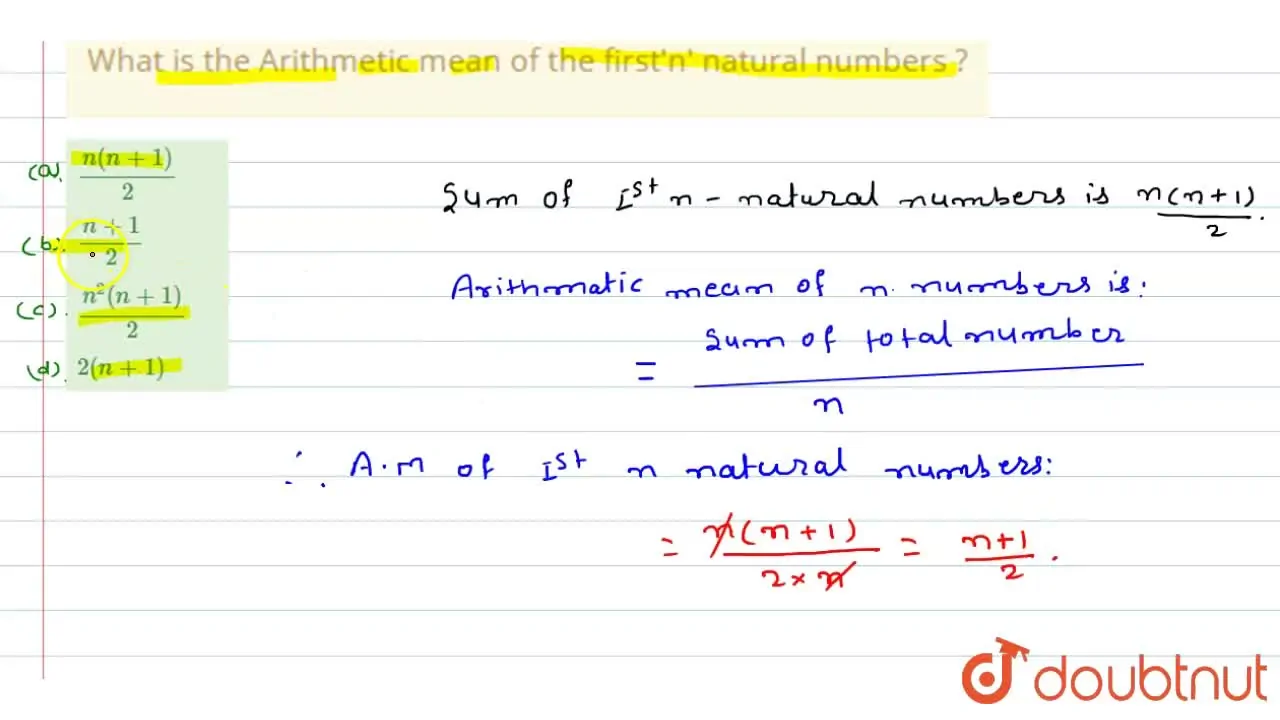 What is the Arithmetic mean of the first'n' natural numbers ?
(a). n(n + 1)/2
(b). n + 1/2
(c). n²(n + 1)/2
(d). 2(n + 1)
Sum of Ist n - natural numbers is n(n+1)/2.
Arithmatic mean of n. numbers is:
= Sum of total number/n
∴ A.M of Ist n natural numbers:
= n(n+1)/2×n = n+1/2.
doubtnut